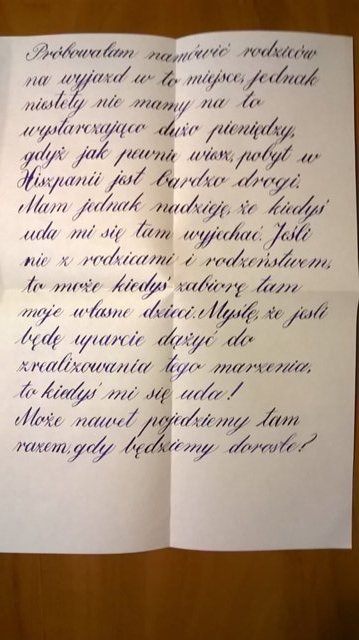 Próbowałam namówić rodziców
na wyjazd w to miejsce, jednak
niestety nie mamy na to
wystarczająco dużo pieniędzy,
gdyż jak pewnie wiesz, pobyt w
Hiszpanii jest bardzo drogi.
Mam jednak nadzieję, że kiedyś
uda mi się tam wyjechać. Jeśli
nie z rodzicami i rodzeństwem,
to może kiedyś zabiorę tam
moje własne dzieci. Myślę, że jeśli
będę uparcie dążyć do
zrealizowania tego marzenia,
to kiedyś mi się uda!
Może nawet pojedziemy tam
razem, gdy będziemy dorosłe?